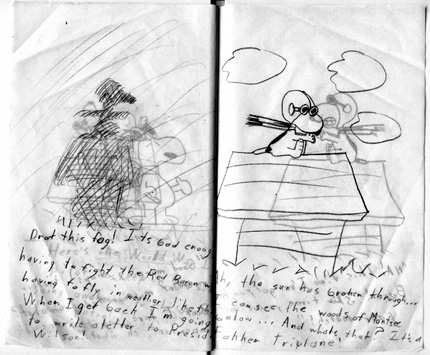 Drat this fog! It's bad enough
having to fight the Red Baron w
having to fly in weather like th
When I get back I'm going
to write a letter to Presid
Wilson!
Ah, the sun has broken through...
I can see the woods of
below... And what's that? It's a
Fokker triplane.